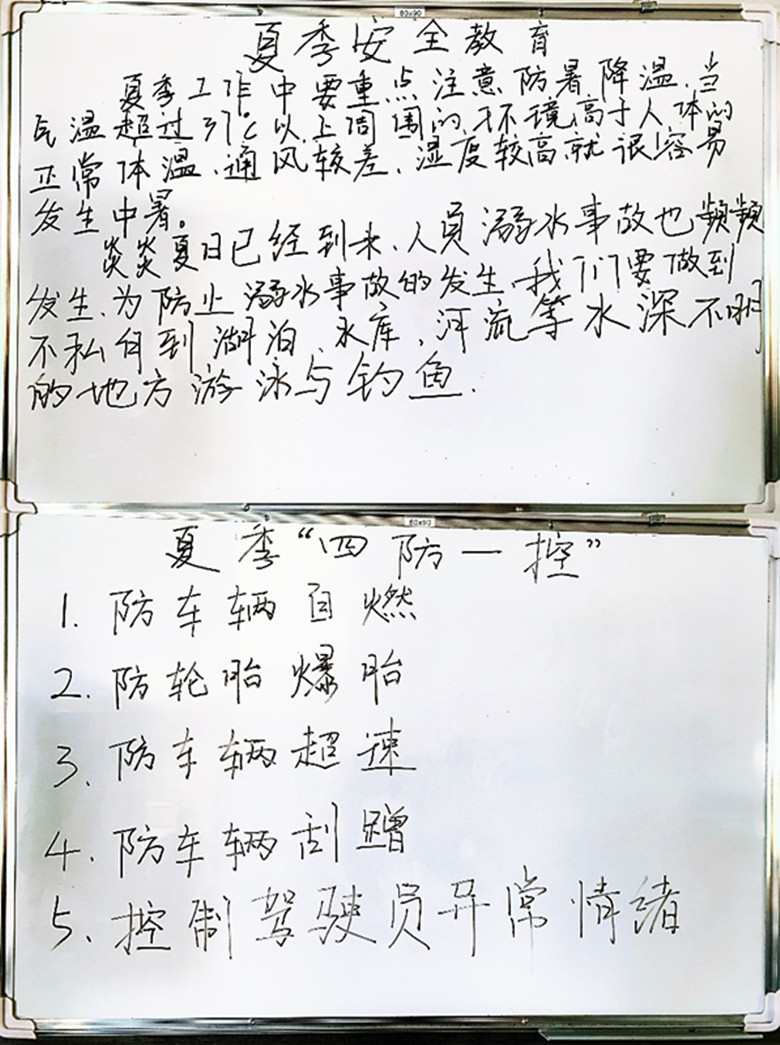 60x90
夏季安全教育
夏季工作中要重点注意防暑降温、当
气温超过37℃以上周围的环境高于人体的
正常体温、通风较差、湿度较高就很容易
发生中暑。
炎炎夏日已经到来、人员溺水事故也频频
发生、为防止溺水事故的发生、我们要做到
不私自到湖泊、水库、河流等水深不明
的地方游泳与钓鱼.
60x90
夏季“四防一控”
1. 防车辆自燃
2. 防轮胎爆胎
3. 防车辆超速
4. 防车辆刮蹭
5、控制驾驶员异常情绪